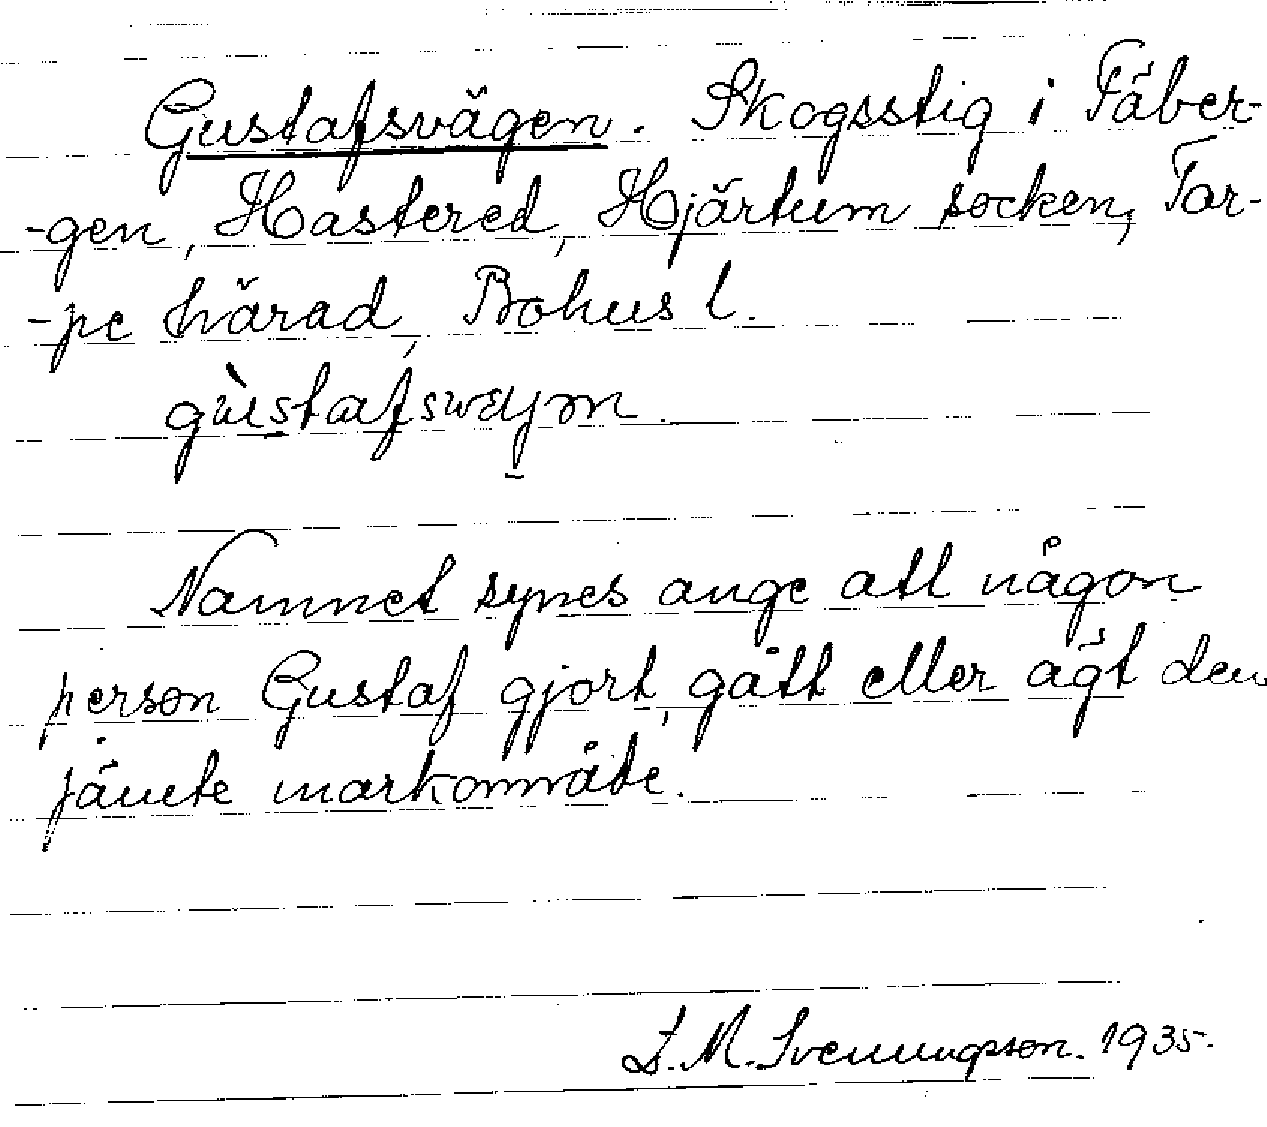 Gustafsvägen. Skogsstig i Täber-
-gen, Hastered, Hjärtum socken, Tor-
-pe härad, Bohus l.
Namnet synes ange att någon
person Gustaf gjort, gått eller ägt den
jämte markområde.
L. M. Svenungsson. 1935.